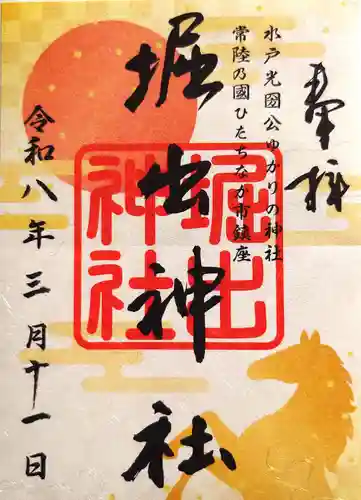 奉拝
水戸光圀公ゆかりの神社
常陸乃國ひたちなか市鎮座
堀出神社
堀出神社
令和八年三月十一日